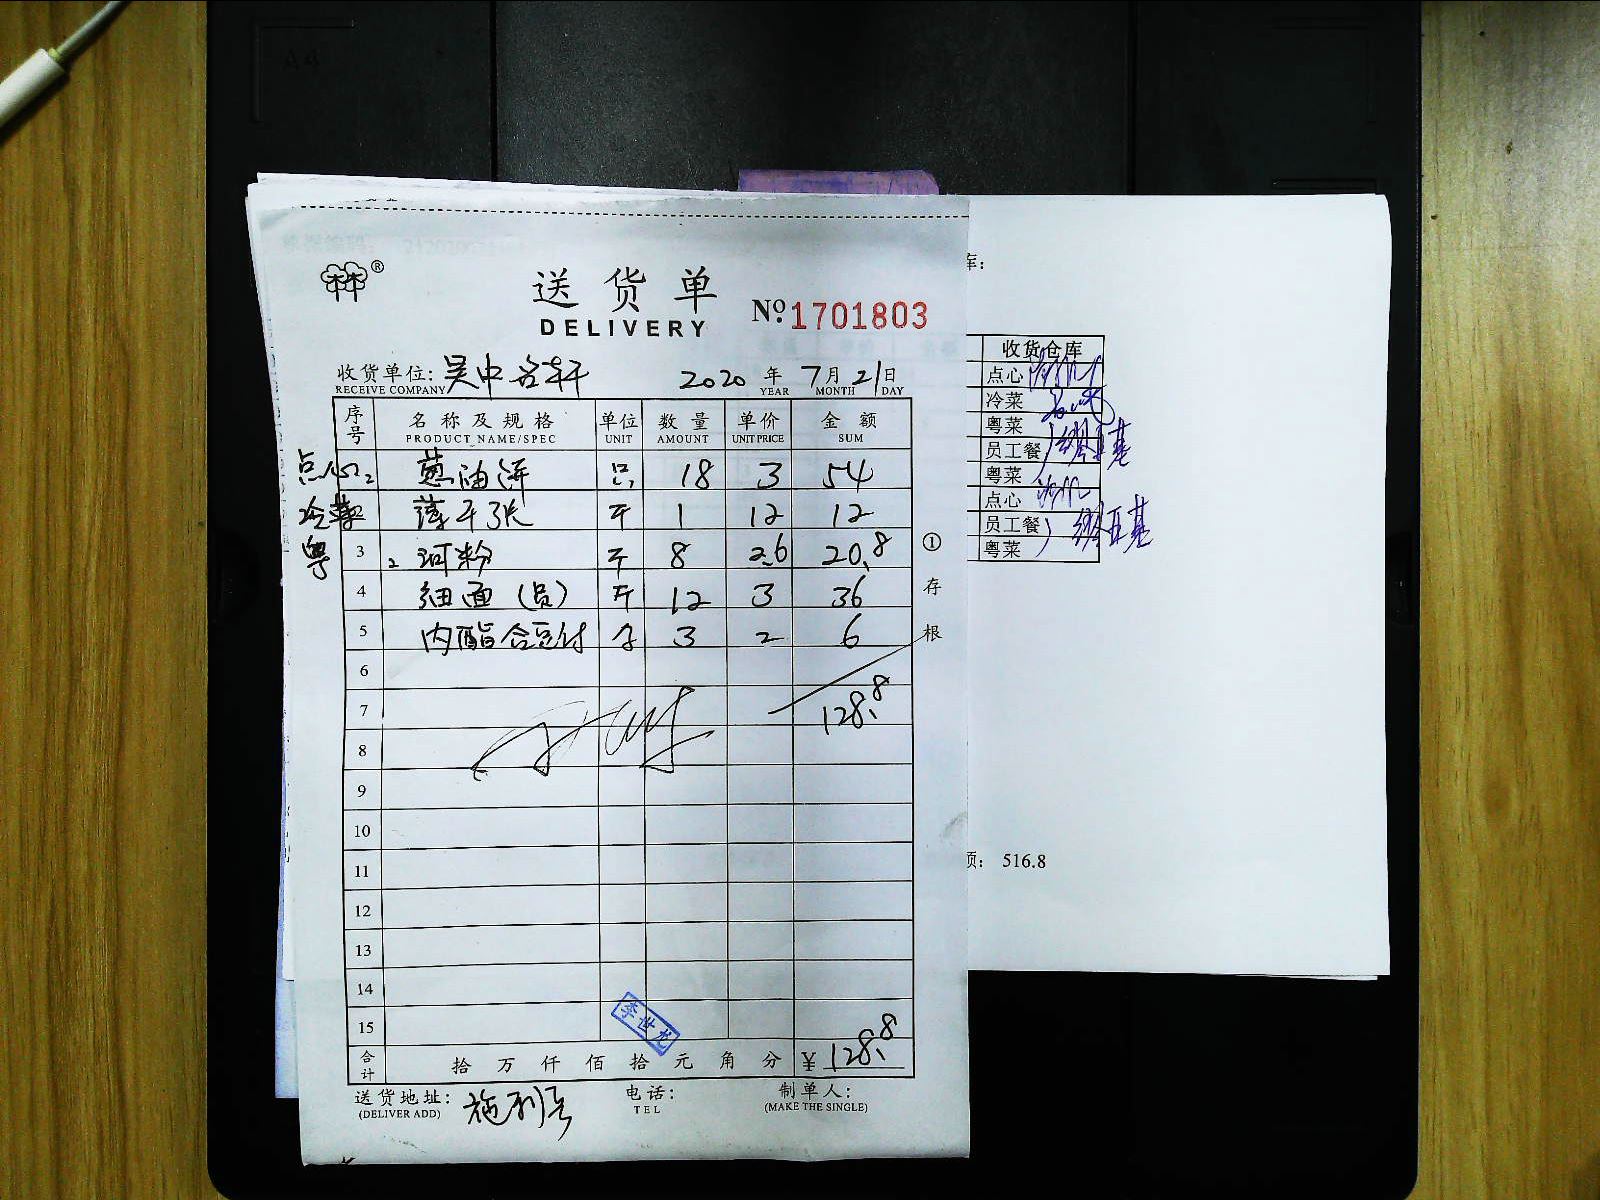 送货单
DELIVERY
№ 1701803
收货单位: 吴中名轩 2020 年 7 月 21 日
RECEIVE COMPANY YEAR MONTH DAY
序号 名称及规格 单位 数量 单价 金额
PRODUCT NAME/SPEC UNIT AMOUNT UNIT PRICE SUM
点心 2 葱油饼 包 18 3 54
冷菜 薄千张 斤 1 12 12
粤 3 河粉 斤 8 2.6 20.8
4 细面(员) 斤 12 3 36
5 内酯合豆付 个 3 2 6
6
7 128.8
8
9
10
11
12
13
14
15
李世龙
合计 拾万仟佰拾元角分 ¥ 128.8
送货地址: 电话: 制单人:
(DELIVER ADD) TEL (MAKE THE SINGLE)
①存根
库:
收货仓库
点心
冷菜
粤菜
员工餐
粤菜
点心
员工餐
粤菜
516.8
A4